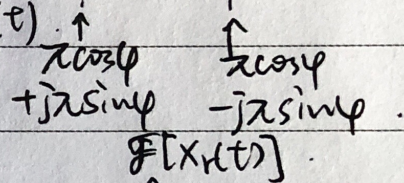 t)
πcosφ πcosφ
+jπsinφ -jπsinφ.
F[Xr(t)].